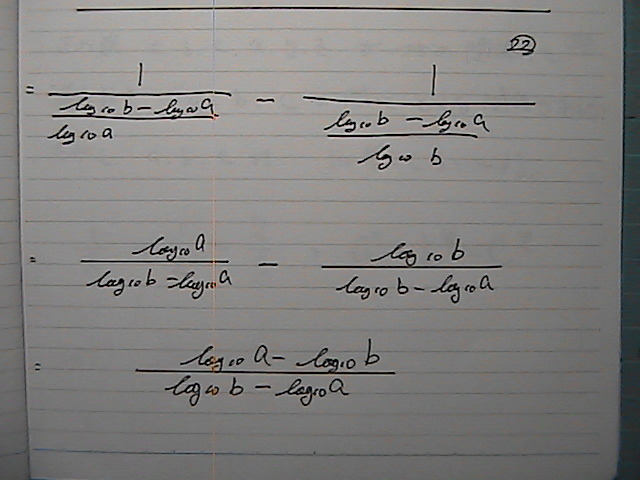 22
= 1 / ((log₁₀ b − log₁₀ a) / log₁₀ a) − 1 / ((log₁₀ b − log₁₀ a) / log₁₀ b)
= log₁₀ a / (log₁₀ b − log₁₀ a) − log₁₀ b / (log₁₀ b − log₁₀ a)
= (log₁₀ a − log₁₀ b) / (log₁₀ b − log₁₀ a)